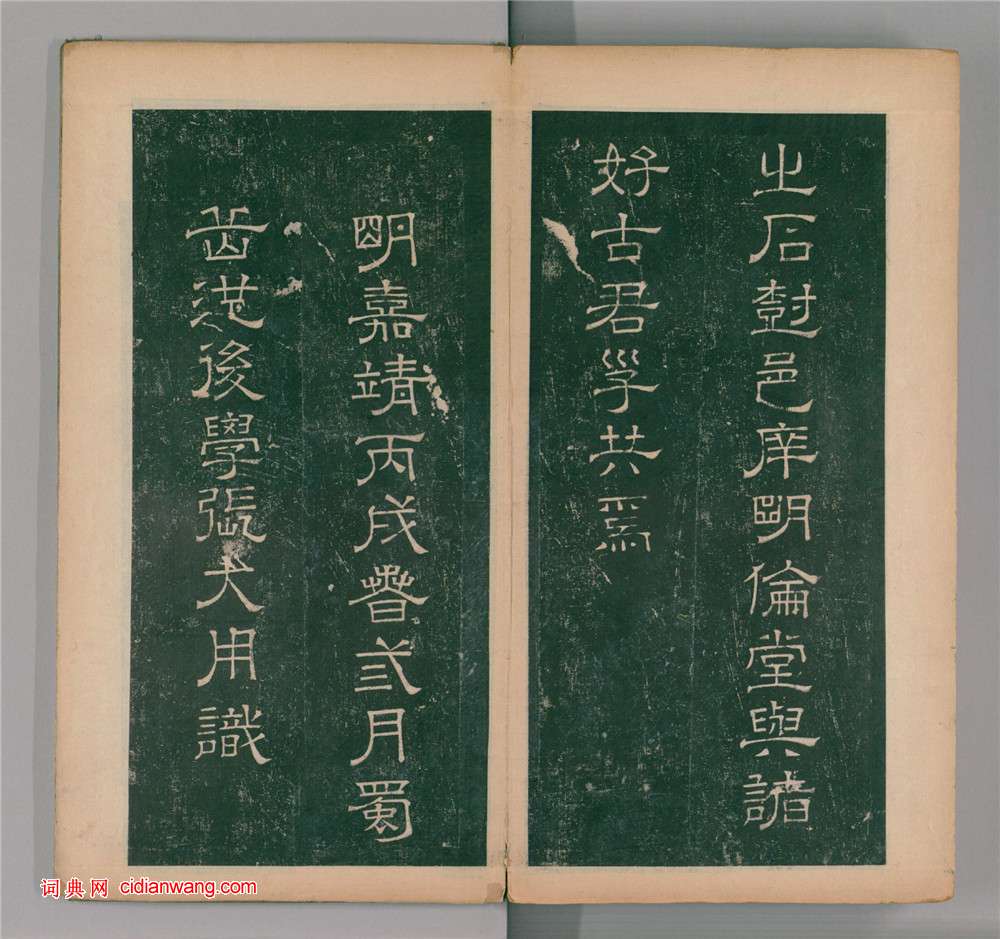 之石尌邑庠明倫堂與諸
好古君子共焉
明嘉靖丙戌春弍月蜀
後學張大用識
词典网 cidianwang.com